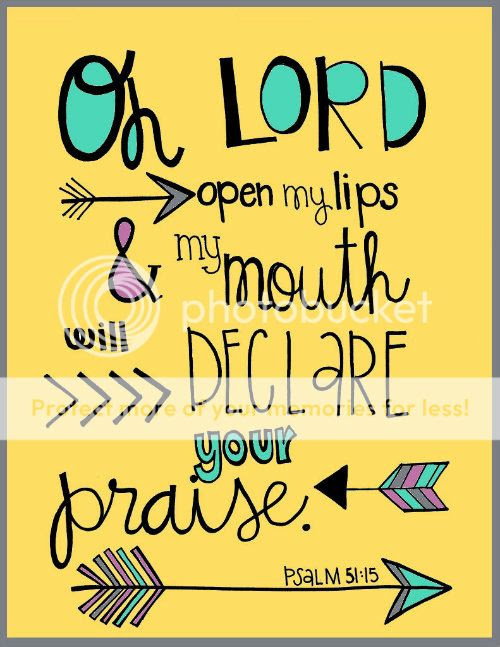 Oh LORD
open my lips
& my mouth
will DECLARE
Protect more of your memories for less!
your
praise.
PSALM 51:15
photobucket